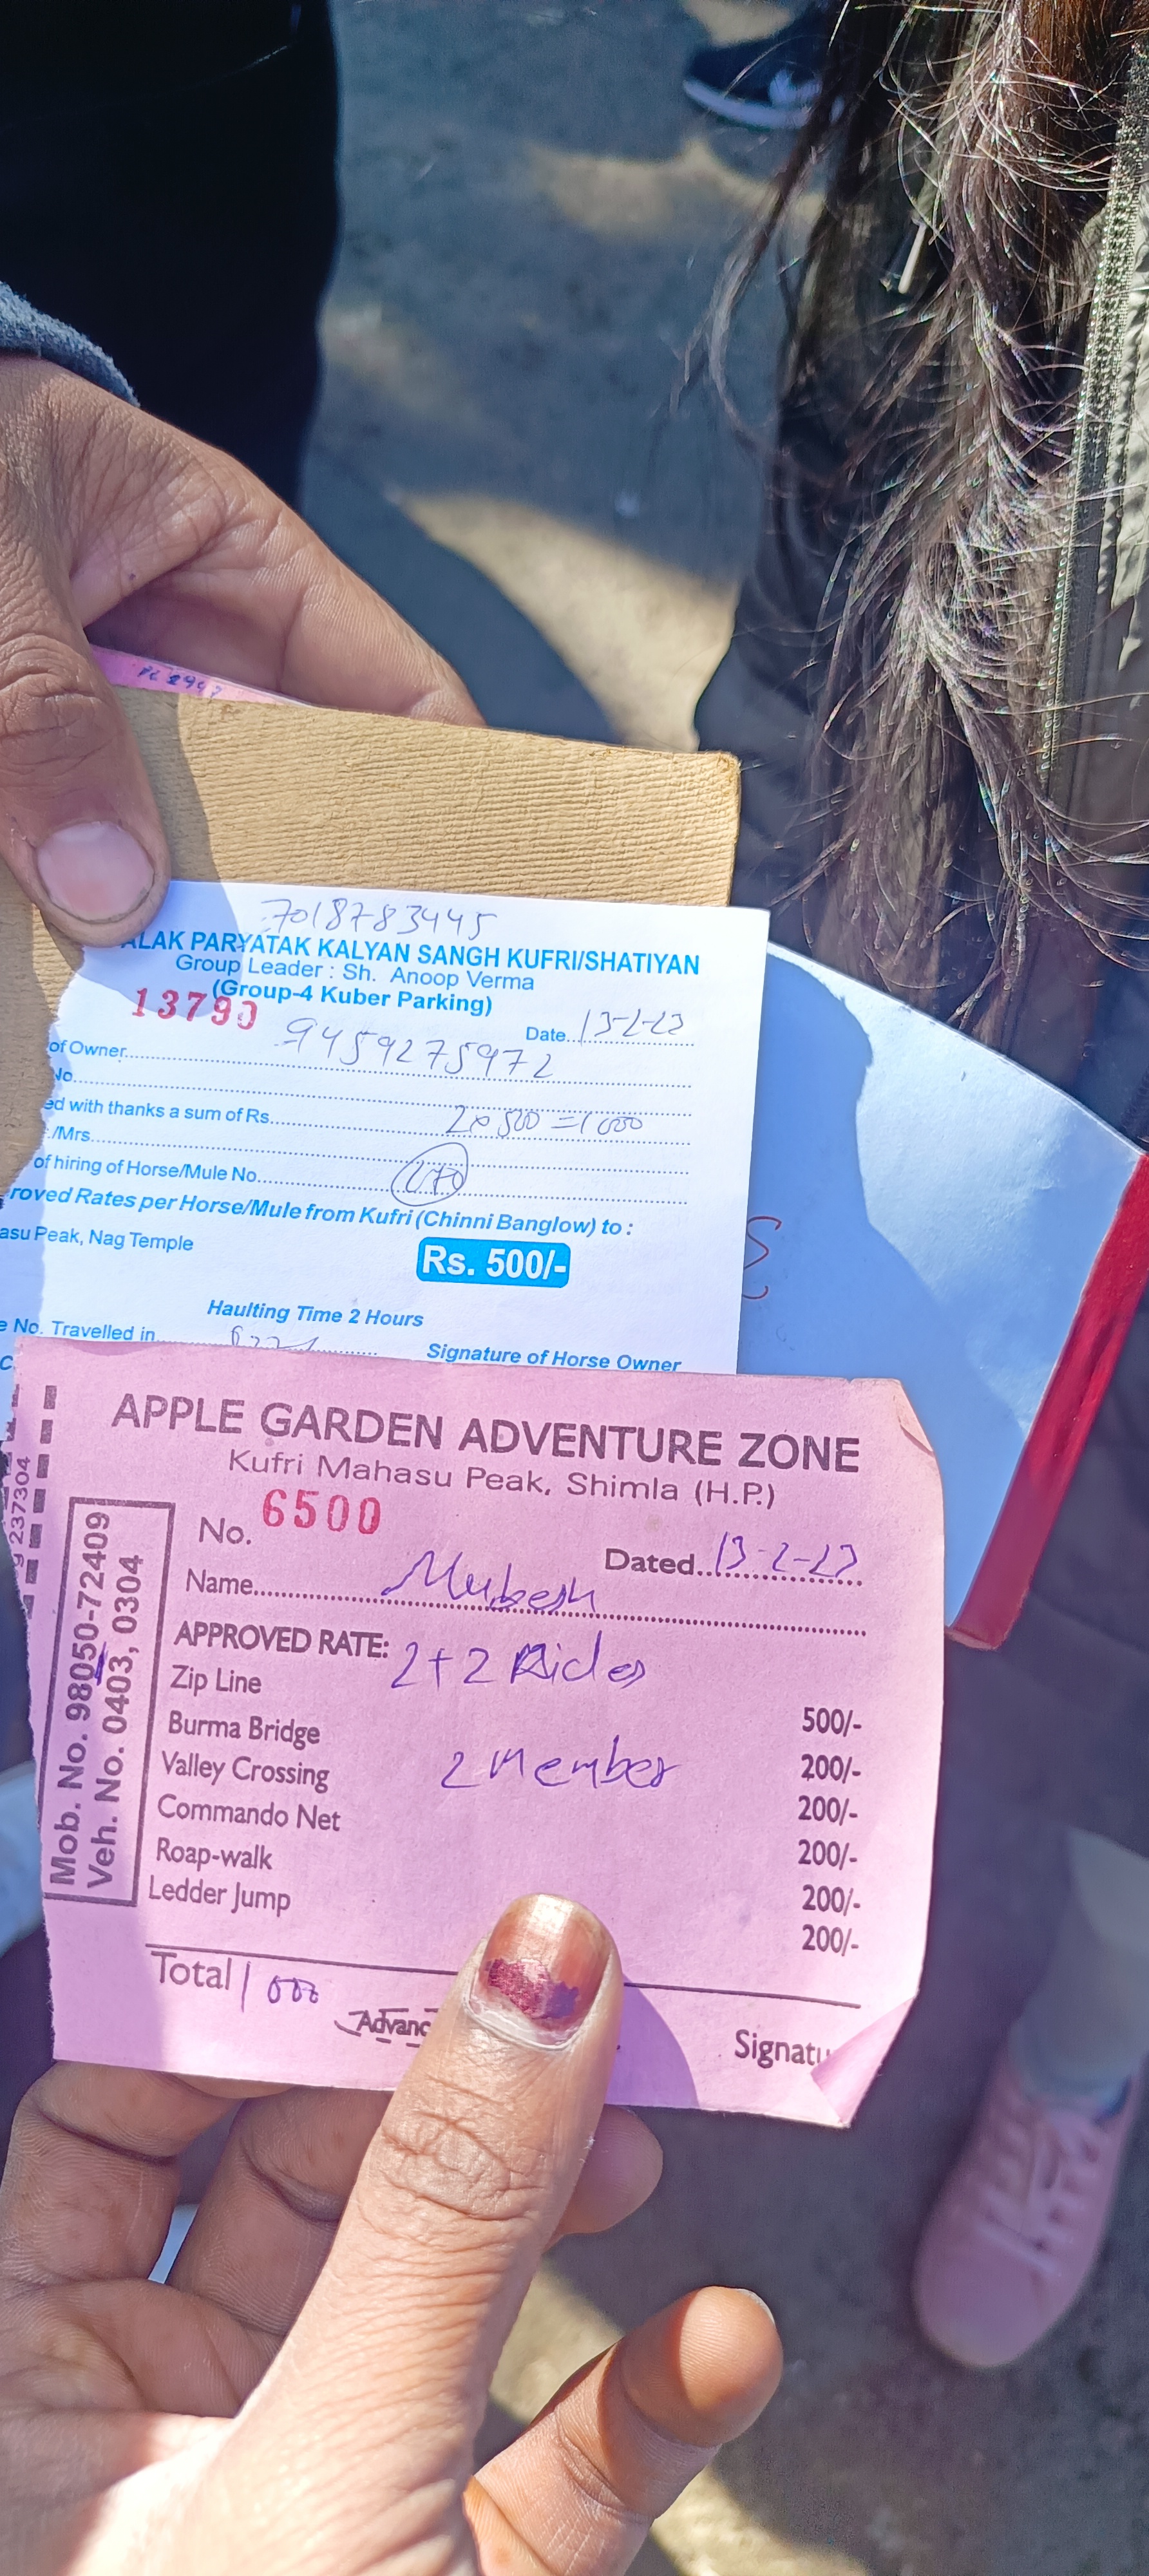 7018783445
ALAK PARYATAK KALYAN SANGH KUFRI/SHATIYAN
Group Leader : Sh. Anoop Verma
(Group-4 Kuber Parking)
13790
Date..13-2-23
of Owner
9459275972
No.
ed with thanks a sum of Rs. 2x500=1000
:/Mrs.
of hiring of Horse/Mule No.
roved Rates per Horse/Mule from Kufri (Chinni Banglow) to :
asu Peak, Nag Temple
Rs. 500/-
Haulting Time 2 Hours
e No. Travelled in
Signature of Horse Owner
APPLE GARDEN ADVENTURE ZONE
Kufri Mahasu Peak, Shimla (H.P.)
No. 6500
Dated..13-2-23
Name Mukesh
APPROVED RATE: 2+2 Rides
Zip Line 500/-
Burma Bridge 200/-
Valley Crossing 200/-
2 member
Commando Net 200/-
Roap-walk 200/-
Ledder Jump 200/-
Total 1000
Advanc
Signatu
Mob. No. 98050-72409
Veh. No. 0403, 0304
237304